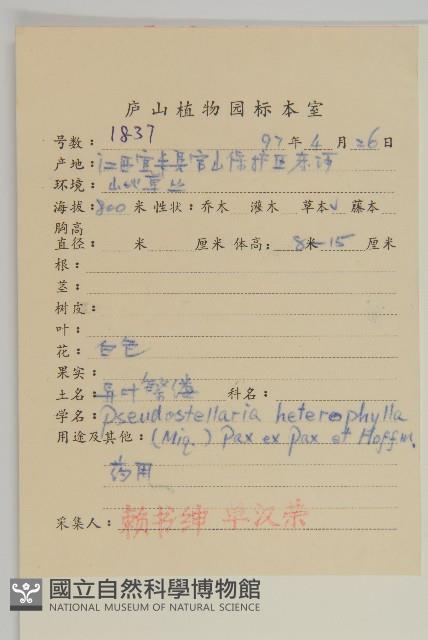 庐山植物园标本室
号数：1837 97年4月26日
产地：江西宜丰县官山保护区东河
环境：山地草丛
海拔：800米 性状：乔木 灌木 草本√ 藤本
胸高
直径： 米 厘米 体高：8米-15厘米
根：
茎：
树皮：
叶：
花：白色
果实：
土名：异叶繁缕 科名：
学名：Pseudostellaria heterophylla
用途及其他：(Miq.) Pax ex Pax et Hoffm.
药用
采集人：赖书绅 单汉荣
國立自然科學博物館
NATIONAL MUSEUM OF NATURAL SCIENCE